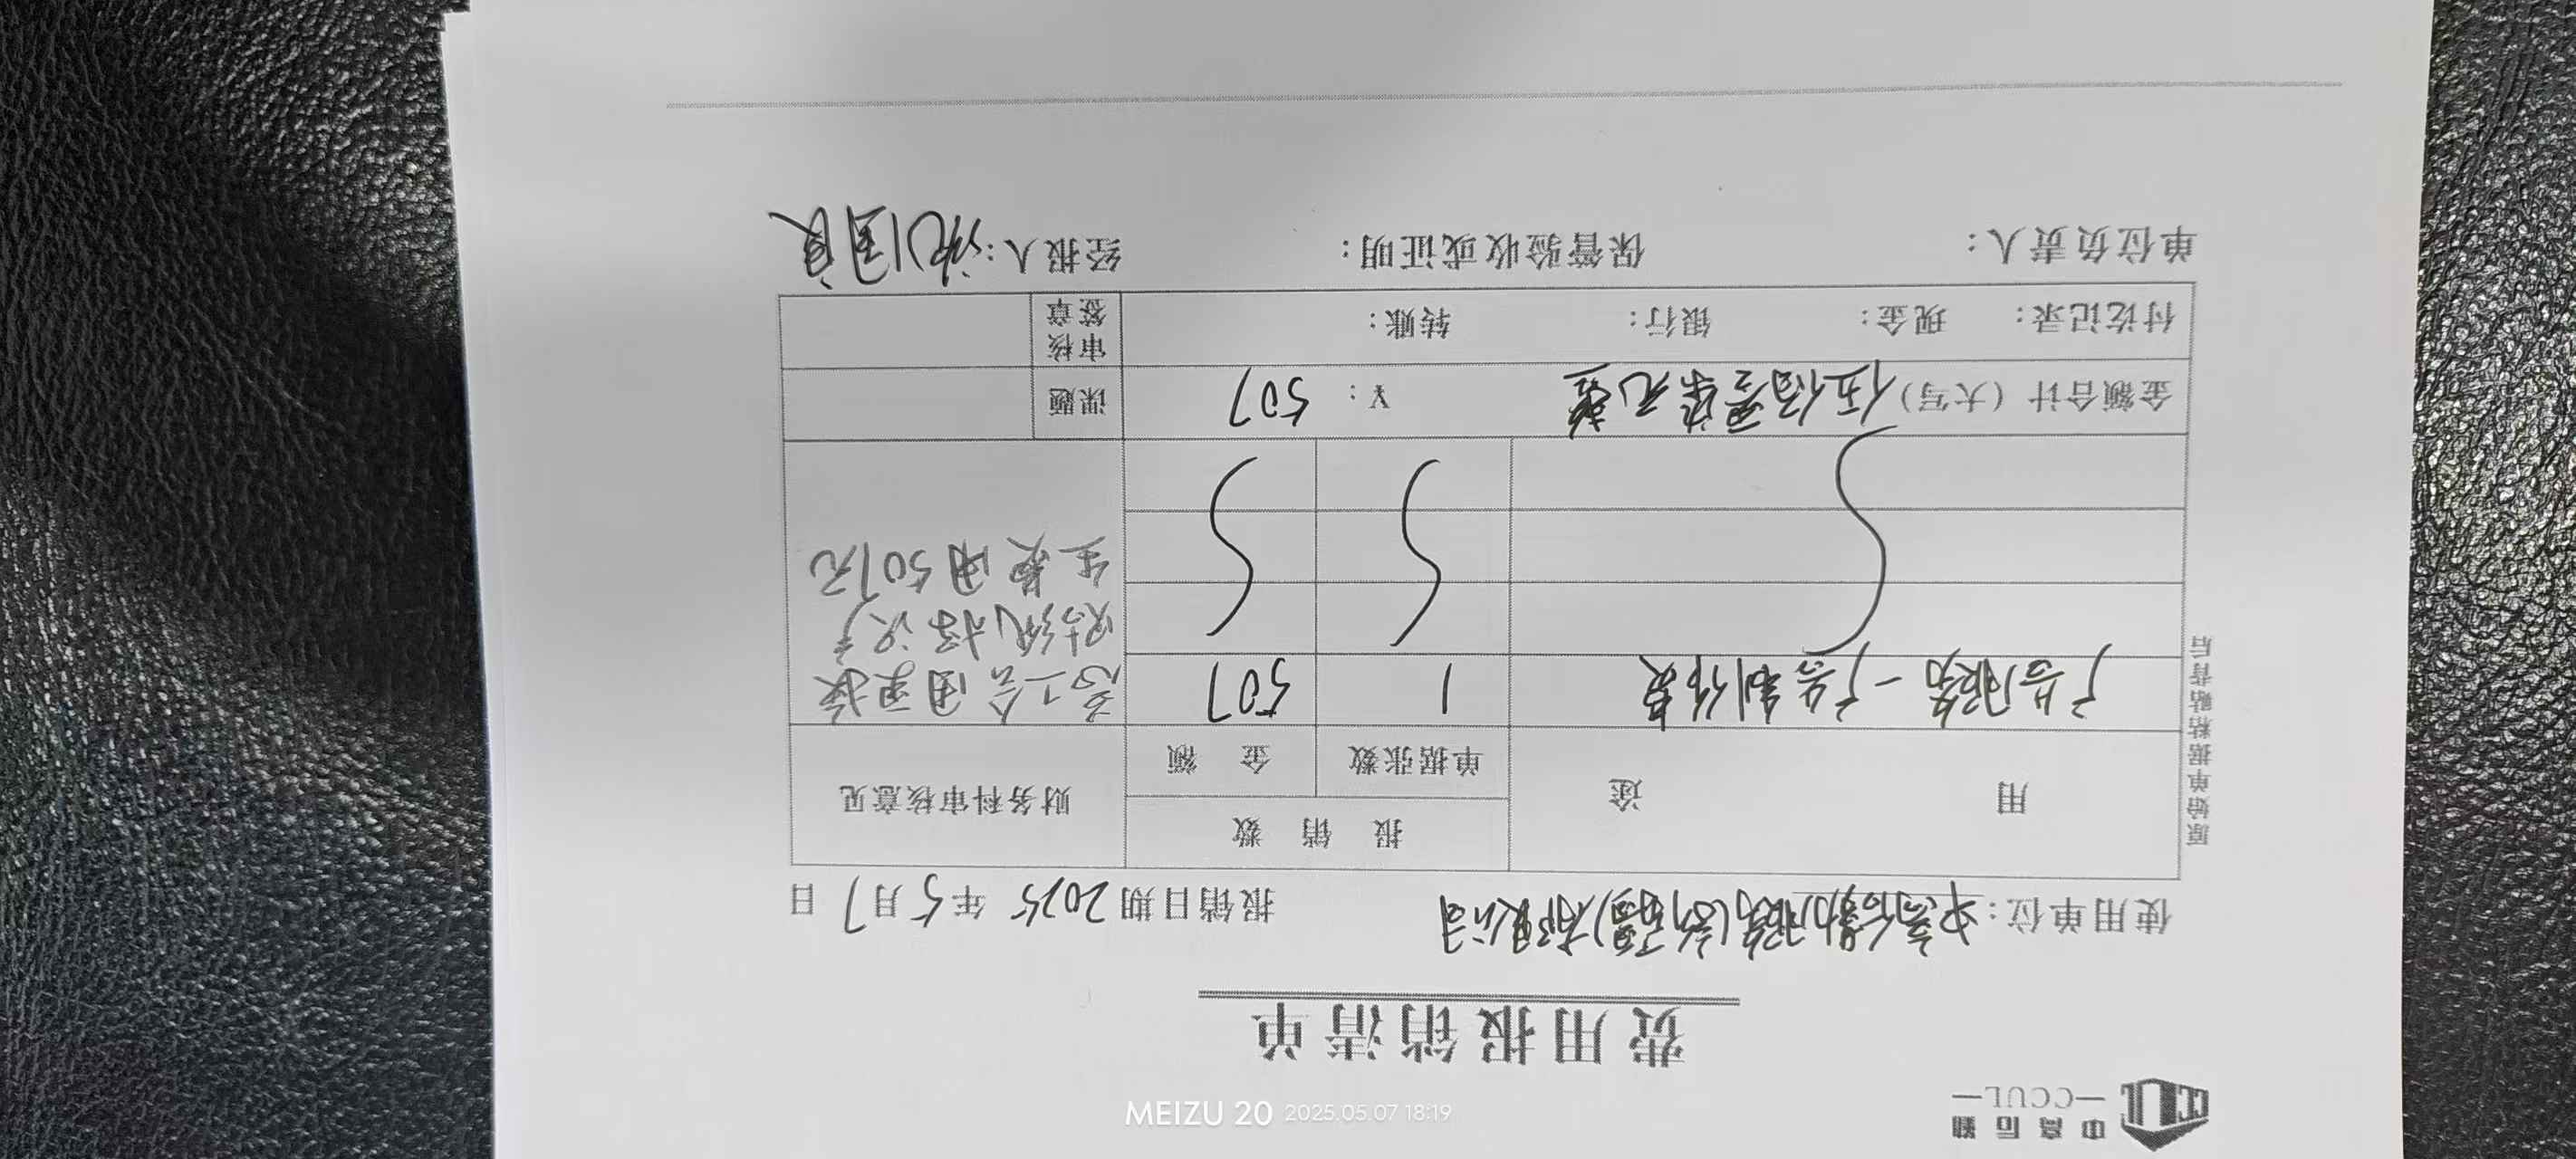 中高后勤
—CCUL—
费用报销清单
使用单位:中高后勤服务(新疆)有限公司 报销日期 2025 年 5 月 7 日
用 途 报 销 数 财务科审核意见
单据张数 金 额
广告服务一广告制作费 1 507
贴纸标识产
生费用507元
金额合计(大写)伍佰零柒元整 ¥: 507 课题
付讫记录: 现金: 银行: 转账: 审核签章
单位负责人: 保管验收或证明: 经报人:
原始单据粘贴背后
MEIZU 20 2025.05.07 18:19